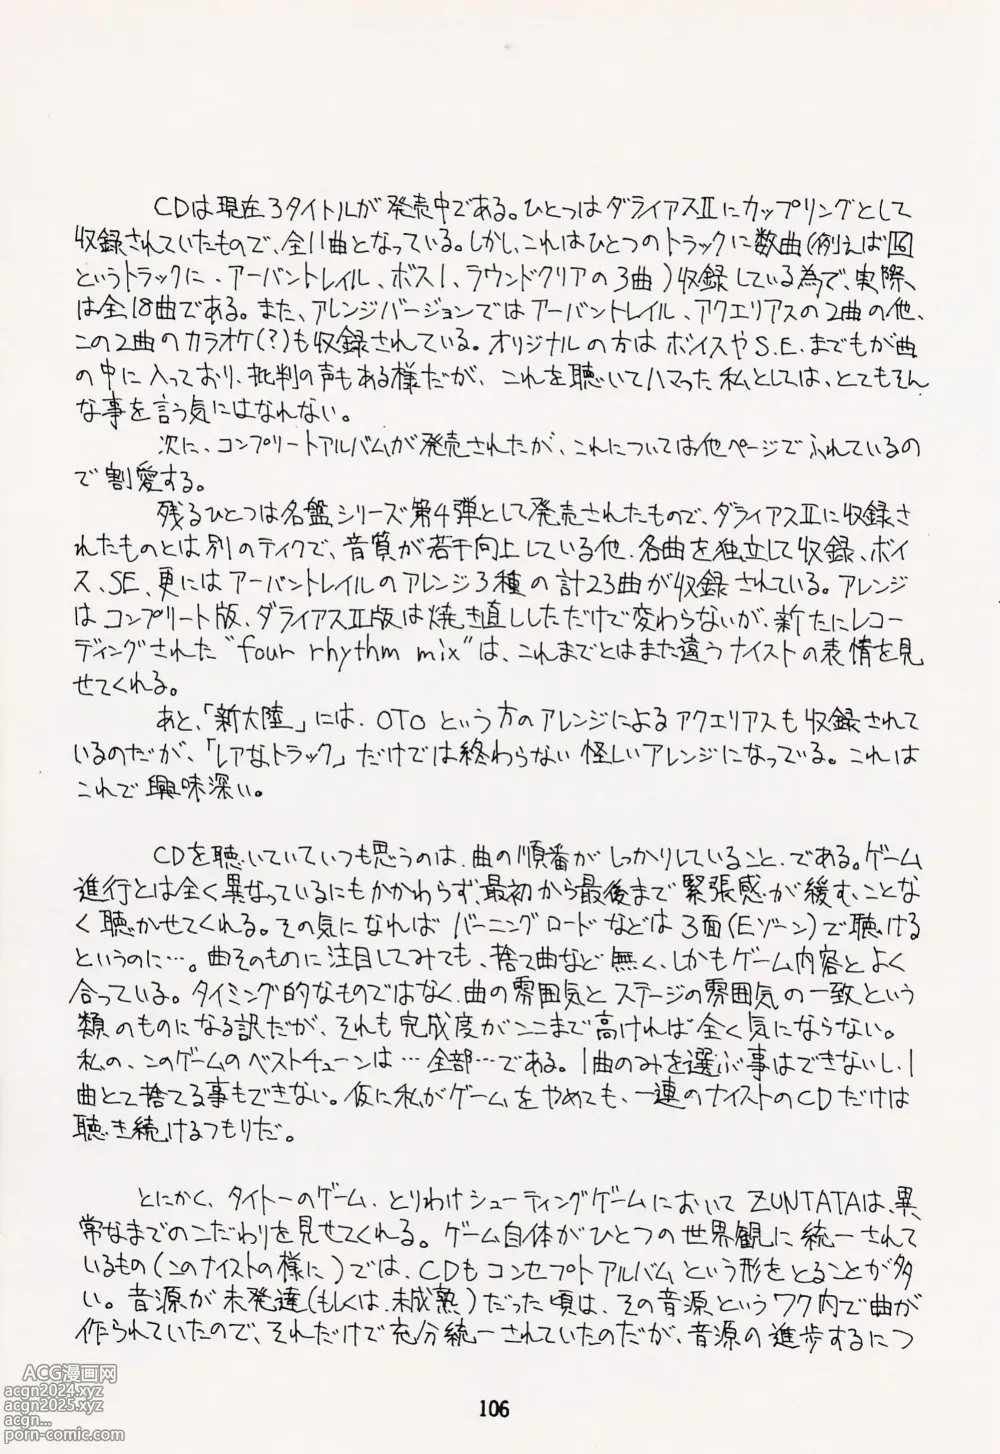 CDは現在3タイトルが発売中である。ひとつはダライアスⅡにカップリングとして
収録されていたもので、全11曲となっている。しかし、これはひとつのトラックに数曲(例えば
というトラックに、アーバントレイル、ボス1、ラウンドクリアの3曲)収録している為で、実際
は全18曲である。また、アレンジバージョンではアーバントレイル、アクエリアスの2曲の他、
この2曲のカラオケ(?)も収録されている。オリジナルの方はボイスやS.E.までもが曲
の中に入っており、批判の声もある様だが、これを聴いてハマった私としては、とてもそん
な事を言う気にはなれない。
次に、コンプリートアルバムが発売されたが、これについては他ページでふれているの
で割愛する。
残るひとつは名盤シリーズ第4弾として発売されたもので、ダライアスⅡに収録さ
れたものとは別のテイクで、音質が若干向上している他、各曲を独立して収録、ボイ
ス、SE、更にはアーバントレイルのアレンジ3種の計23曲が収録されている。アレンジ
はコンプリート版、ダライアスⅡ版は焼き直ししただけで変わらないが、新たにレコー
ディングされた"four rhythm mix"は、これまでとはまた違うナイストの表情を見
せてくれる。
あと、「新大陸」には、OTOという方のアレンジによるアクエリアスも収録されて
いるのだが、「レアなトラック」だけでは終わらない怪しいアレンジになっている。これは
これで興味深い。
CDを聴いていていつも思うのは、曲の順番がしっかりしていること、である。ゲーム
進行とは全く異なっているにもかかわらず、最初から最後まで緊張感が緩むことな
く聴かせてくれる。その気になればバーニングロードなどは3面(Eゾーン)で聴ける
というのに…。曲そのものに注目してみても、捨て曲など無く、しかもゲーム内容とよく
合っている。タイミング的なものではなく、曲の雰囲気とステージの雰囲気の一致という
類のものになる訳だが、それも完成度がここまで高ければ全く気にならない。
私の、このゲームのベストチューンは…全部…である。1曲のみを選ぶ事はできないし、1
曲とて捨てる事もできない。仮に私がゲームをやめても、一連のナイストのCDだけは
聴き続けるつもりだ。
とにかく、タイトーのゲーム、とりわけシューティングゲームにおいてZUNTATAは、異
常なまでのこだわりを見せてくれる。ゲーム自体がひとつの世界観に統一されて
いるもの(このナイストの様に)では、CDもコンセプトアルバムという形をとることが多
い。音源が未発達(もしくは、未成熟)だった頃は、その音源というワク内で曲が
作られていたので、それだけで充分統一されていたのだが、音源の進歩するにつ
106
ACG漫画网
acgn2024.xyz
acgn2025.xyz
acgn...
porn-comic.com